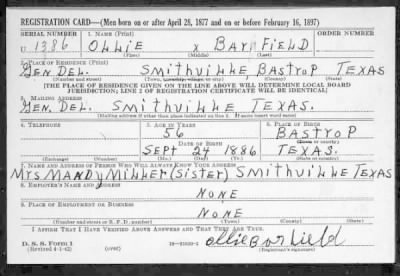 REGISTRATION CARD—(Men born on or after April 28, 1877 and on or before February 16, 1897)
SERIAL NUMBER 1. NAME (Print) ORDER NUMBER
U 1386 OLLIE x BARFIELD
(First) (Middle) (Last)
2. PLACE OF RESIDENCE (Print)
GEN. DEL. SMITHVILLE, BASTROP TEXAS
(Number and street) (Town, township, village, or city) (County) (State)
[THE PLACE OF RESIDENCE GIVEN ON THE LINE ABOVE WILL DETERMINE LOCAL BOARD
JURISDICTION; LINE 2 OF REGISTRATION CERTIFICATE WILL BE IDENTICAL]
3. MAILING ADDRESS
GEN. DEL. SMITHVILLE TEXAS.
[Mailing address if other than place indicated on line 2. If same insert word same]
4. TELEPHONE 5. AGE IN YEARS 6. PLACE OF BIRTH
56 BASTROP
DATE OF BIRTH (Town or county)
SEPT 24 1886 TEXAS.
(Exchange) (Number) (Mo.) (Day) (Yr.) (State or country)
7. NAME AND ADDRESS OF PERSON WHO WILL ALWAYS KNOW YOUR ADDRESS
Mrs MANDY MILLER (SISTER) SMITHVILLE TEXAS
8. EMPLOYER'S NAME AND ADDRESS
NONE
9. PLACE OF EMPLOYMENT OR BUSINESS
NONE
(Number and street or R. F. D. number) (Town) (County) (State)
I AFFIRM THAT I HAVE VERIFIED ABOVE ANSWERS AND THAT THEY ARE TRUE.
D. S. S. Form 1
(Revised 4-1-42) (over) Ollie Barfield
(Registrant's signature)